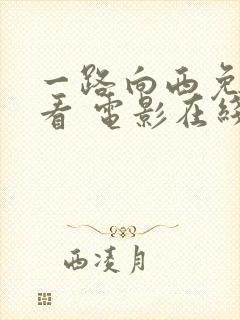 一路向西免
看 电影在线
西凌月